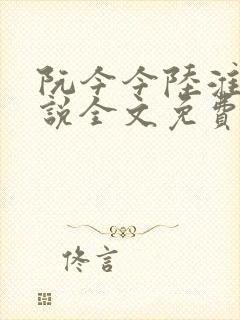 阮今今陸淮
說全文免費
佟言